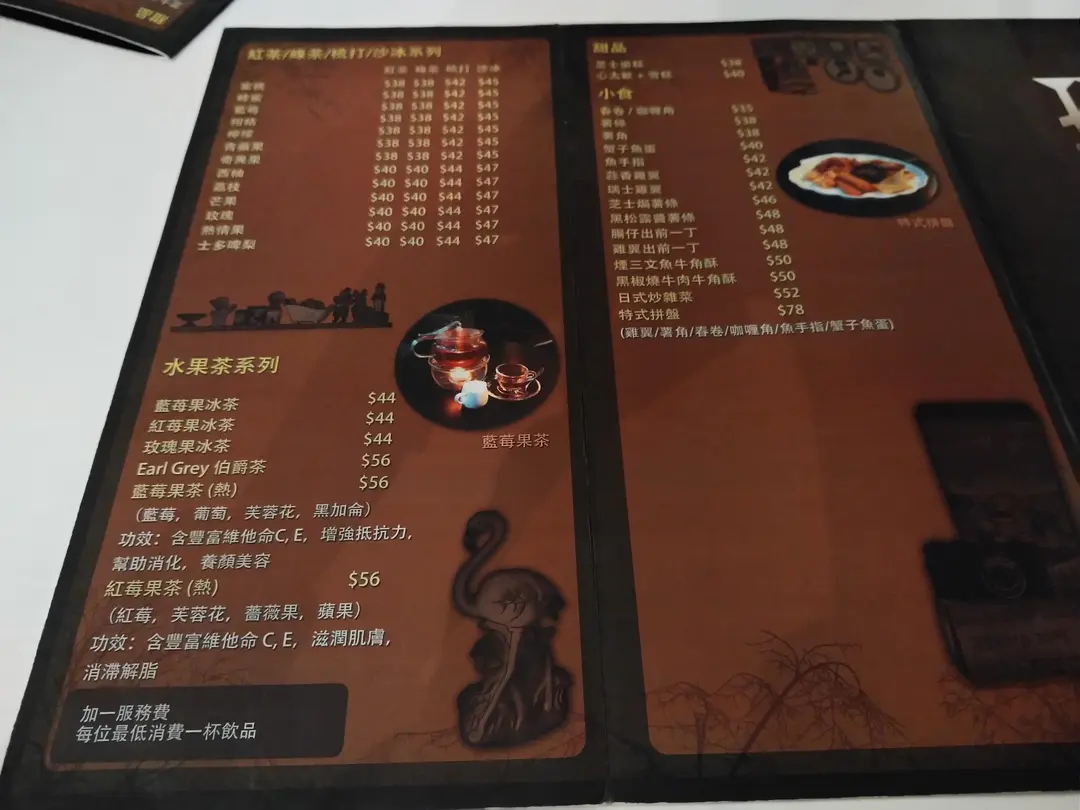 紅茶/綠茶/梳打/沙冰系列
紅茶 綠茶 梳打 沙冰
蜜桃 $38 $38 $42 $45
蜂蜜 $38 $38 $42 $45
藍莓 $38 $38 $42 $45
柑桔 $38 $38 $42 $45
檸檬 $38 $38 $42 $45
青蘋果 $38 $38 $42 $45
奇異果 $38 $38 $42 $45
西柚 $40 $40 $44 $47
荔枝 $40 $40 $44 $47
芒果 $40 $40 $44 $47
玫瑰 $40 $40 $44 $47
熱情果 $40 $40 $44 $47
士多啤梨 $40 $40 $44 $47
水果茶系列
藍莓果冰茶 $44
紅莓果冰茶 $44
玫瑰果冰茶 $44
Earl Grey 伯爵茶 $56
藍莓果茶 (熱) $56
（藍莓，葡萄，芙蓉花，黑加侖）
功效：含豐富維他命C, E，增強抵抗力，
幫助消化，養顏美容
紅莓果茶 (熱) $56
（紅莓，芙蓉花，薔薇果，蘋果）
功效：含豐富維他命 C, E，滋潤肌膚，
消滯解脂
加一服務費
每位最低消費一杯飲品
藍莓果茶
甜品
芝士蛋糕 $38
心太軟 + 雪糕 $40
小食
春卷 / 咖喱角 $35
薯條 $38
薯角 $38
蟹子魚蛋 $40
魚手指 $42
蒜香雞翼 $42
瑞士雞翼 $42
芝士焗薯條 $46
黑松露醬薯條 $48
腸仔出前一丁 $48
雞翼出前一丁 $48
煙三文魚牛角酥 $50
黑椒燒牛肉牛角酥 $50
日式炒雜菜 $52
特式拼盤 $78
(雞翼/薯角/春卷/咖喱角/魚手指/蟹子魚蛋)
特式拼盤